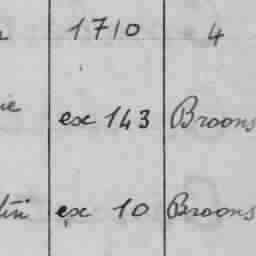 1710 4
ex 143 Broons
ex 10 Broons